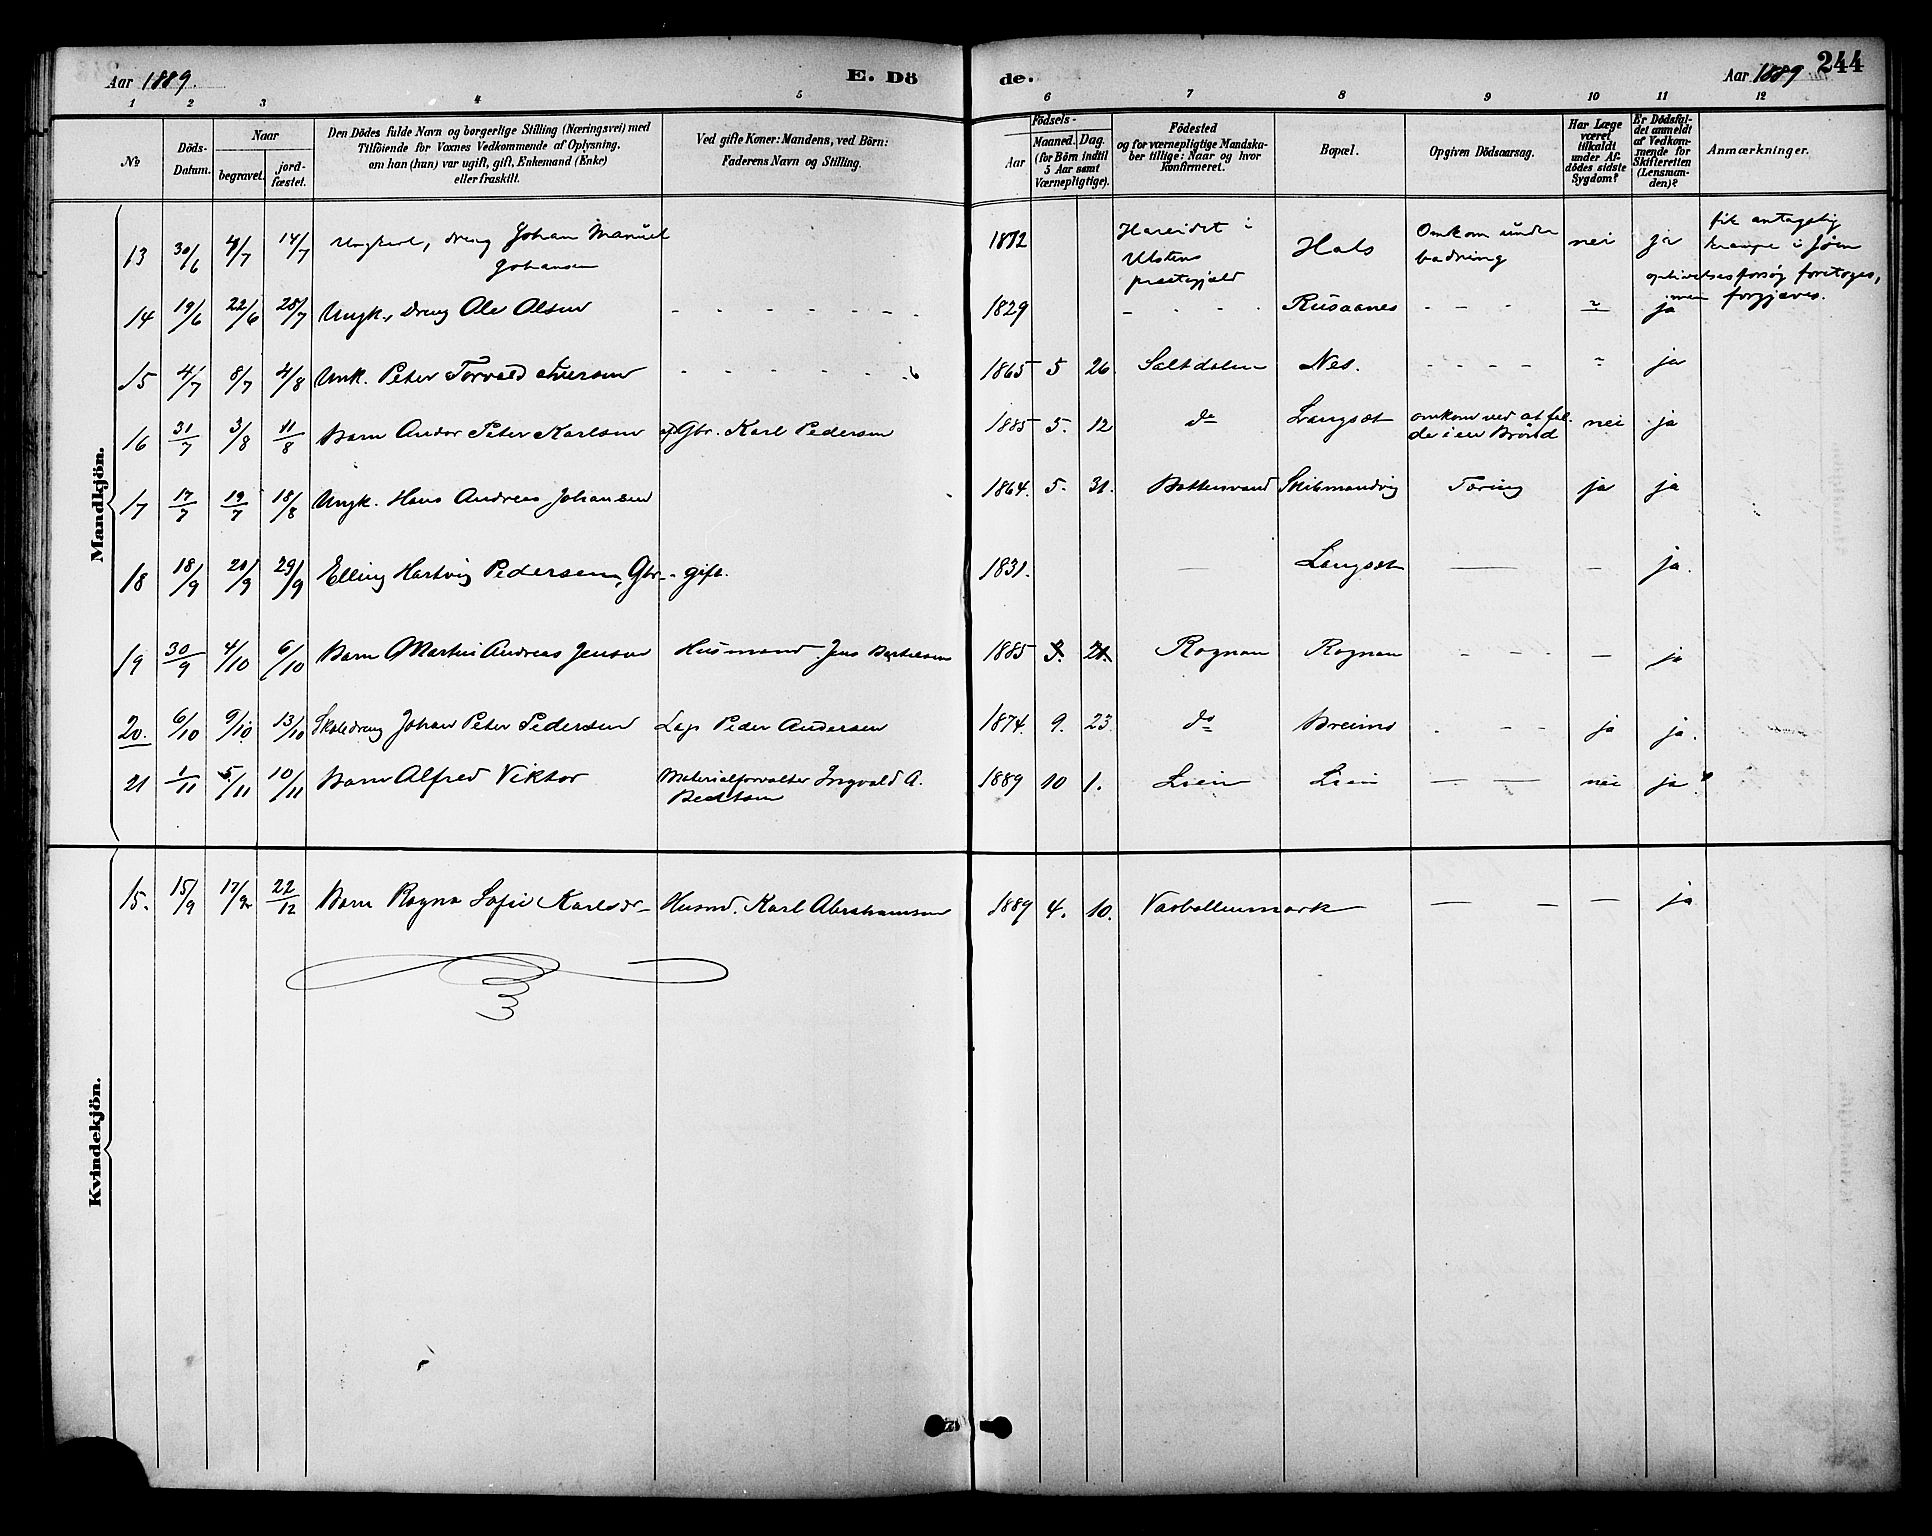 Aar 1889.
E. Dö
de.
Aar 1889
244
1 2 3 4 5 6 7 8 9 10 11 12
№
Döds-
Datum.
Naar
begravet.
jord-
fæstet.
Den Dödes fulde Navn og borgerlige Stilling (Næringsvei) med
Tilföiende for Voxnes Vedkommende af Oplysning,
om han (hun) var ugift, gift, Enkemand (Enke)
eller fraskilt.
Ved gifte Koner: Mandens, ved Börn:
Faderens Navn og Stilling.
Födsels-
Aar
Maaned. Dag.
(for Börn indtil
5 Aar samt
Værnepligtige).
Födested
og for værnepligtige Mandska-
ber tillige: Naar og hvor
konfirmeret.
Bopæl.
Opgiven Dödsaarsag.
Har Læge
været
tilkaldt
under Af-
dödes sidste
Sygdom?
Er Dödsfal-
det anmeldt
af Vedkom-
mende for
Skifteretten
(Lensman-
den)?
Anmærkninger.
Mandkjön.
13 30/6 4/7 14/7 Ungkarl, dreng Johan Manuel
Johansen
1872 Hareidet i
Ulstens
præstegjæld
Hals
Omkom under
badning
nei ja
fik antagelig
krampe i sjøen
oplivelsesforsøg foretoges,
men forgjæves.
14 19/6 22/6 28/7 Ungk., dreng Ole Olsen - - - - - - - 1829 - - - Rusaanes - - - " ja
15 4/7 8/7 4/8 Unk. Peter Torvald Iversen - - - - - - 1865 5 26. Saltdalen Nes. - - - - " ja
16 31/7 3/8 11/8 Barn Andor Peter Karlsen af Gbr. Karl Pedersen 1885 5. 12 do Langset omkom ved at fal-
de i en Brønd nei ja
17 17/7 19/7 18/8 Ungk. Hans Andreas Johansen 1864. 5. 31. Botnvand Skibmandvig Tæring ja ja
18 18/9 20/9 29/9 Elling Hartvig Pedersen, Gbr. - gift. 1831. — Langset — - ja.
19 30/9 4/10 6/10 Barn Martin Andreas Jensen Husmand Jens Bertelsen 1885 3. 21. Rognan Rognan - - - - — ja
20. 6/10 9/10 13/10 Skoledreng Johan Peter Pedersen Lap Peder Andersen 1874. 9. 23. do Breimo - - - ja ja.
21 1/11 5/11 10/11 Barn Alfred Viktor Materialforvalter Ingvald A.
Bentsen
1889 10 1. Lien Lien — — nei ja.
Kvindekjön.
15. 15/9 17/9 22/12 Barn Ragna Sofie Karlsdr— Husmd. Karl Abrahamsen 1889 4. 10. Vasbottenmark — — — ja